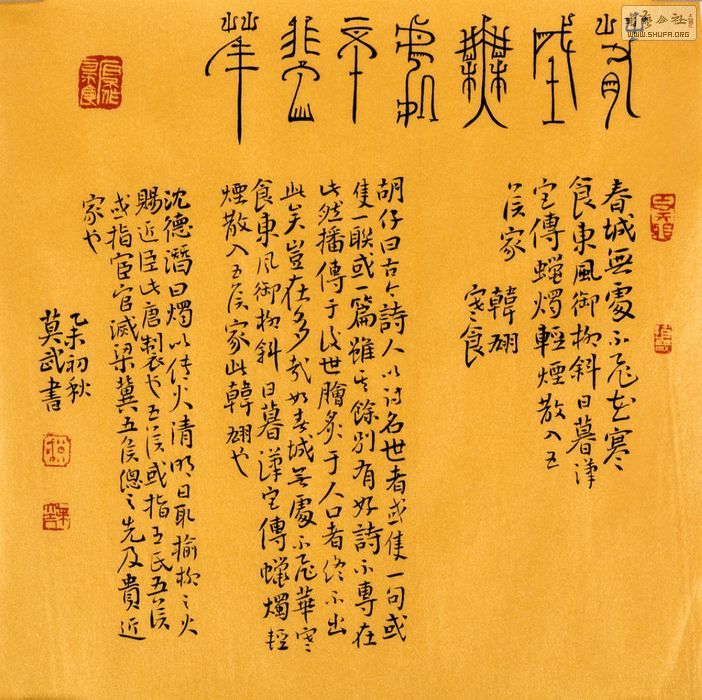 春城無處不飛華
春城無處不飛花寒
食東風御柳斜日暮漢
宮傳蠟燭輕煙散入五
侯家 韓翃
寒食
胡仔曰古今詩人以詩名世者或隻一句或
隻一聯或一篇雖其餘別有好詩不專在
此然播傳于後世膾炙于人口者終不出
此矣豈在多哉如春城無處不飛華寒
食東風御柳斜日暮漢宮傳蠟燭輕
煙散入五侯家此韓翃也
沈德潛曰燭以傳火清明日取榆柳之火
賜近臣此唐製也五侯或指王氏五侯
或指宦官滅梁冀五侯總之先及貴近
家也
乙未初秋
莫武書
WWW.SHUFA.ORG